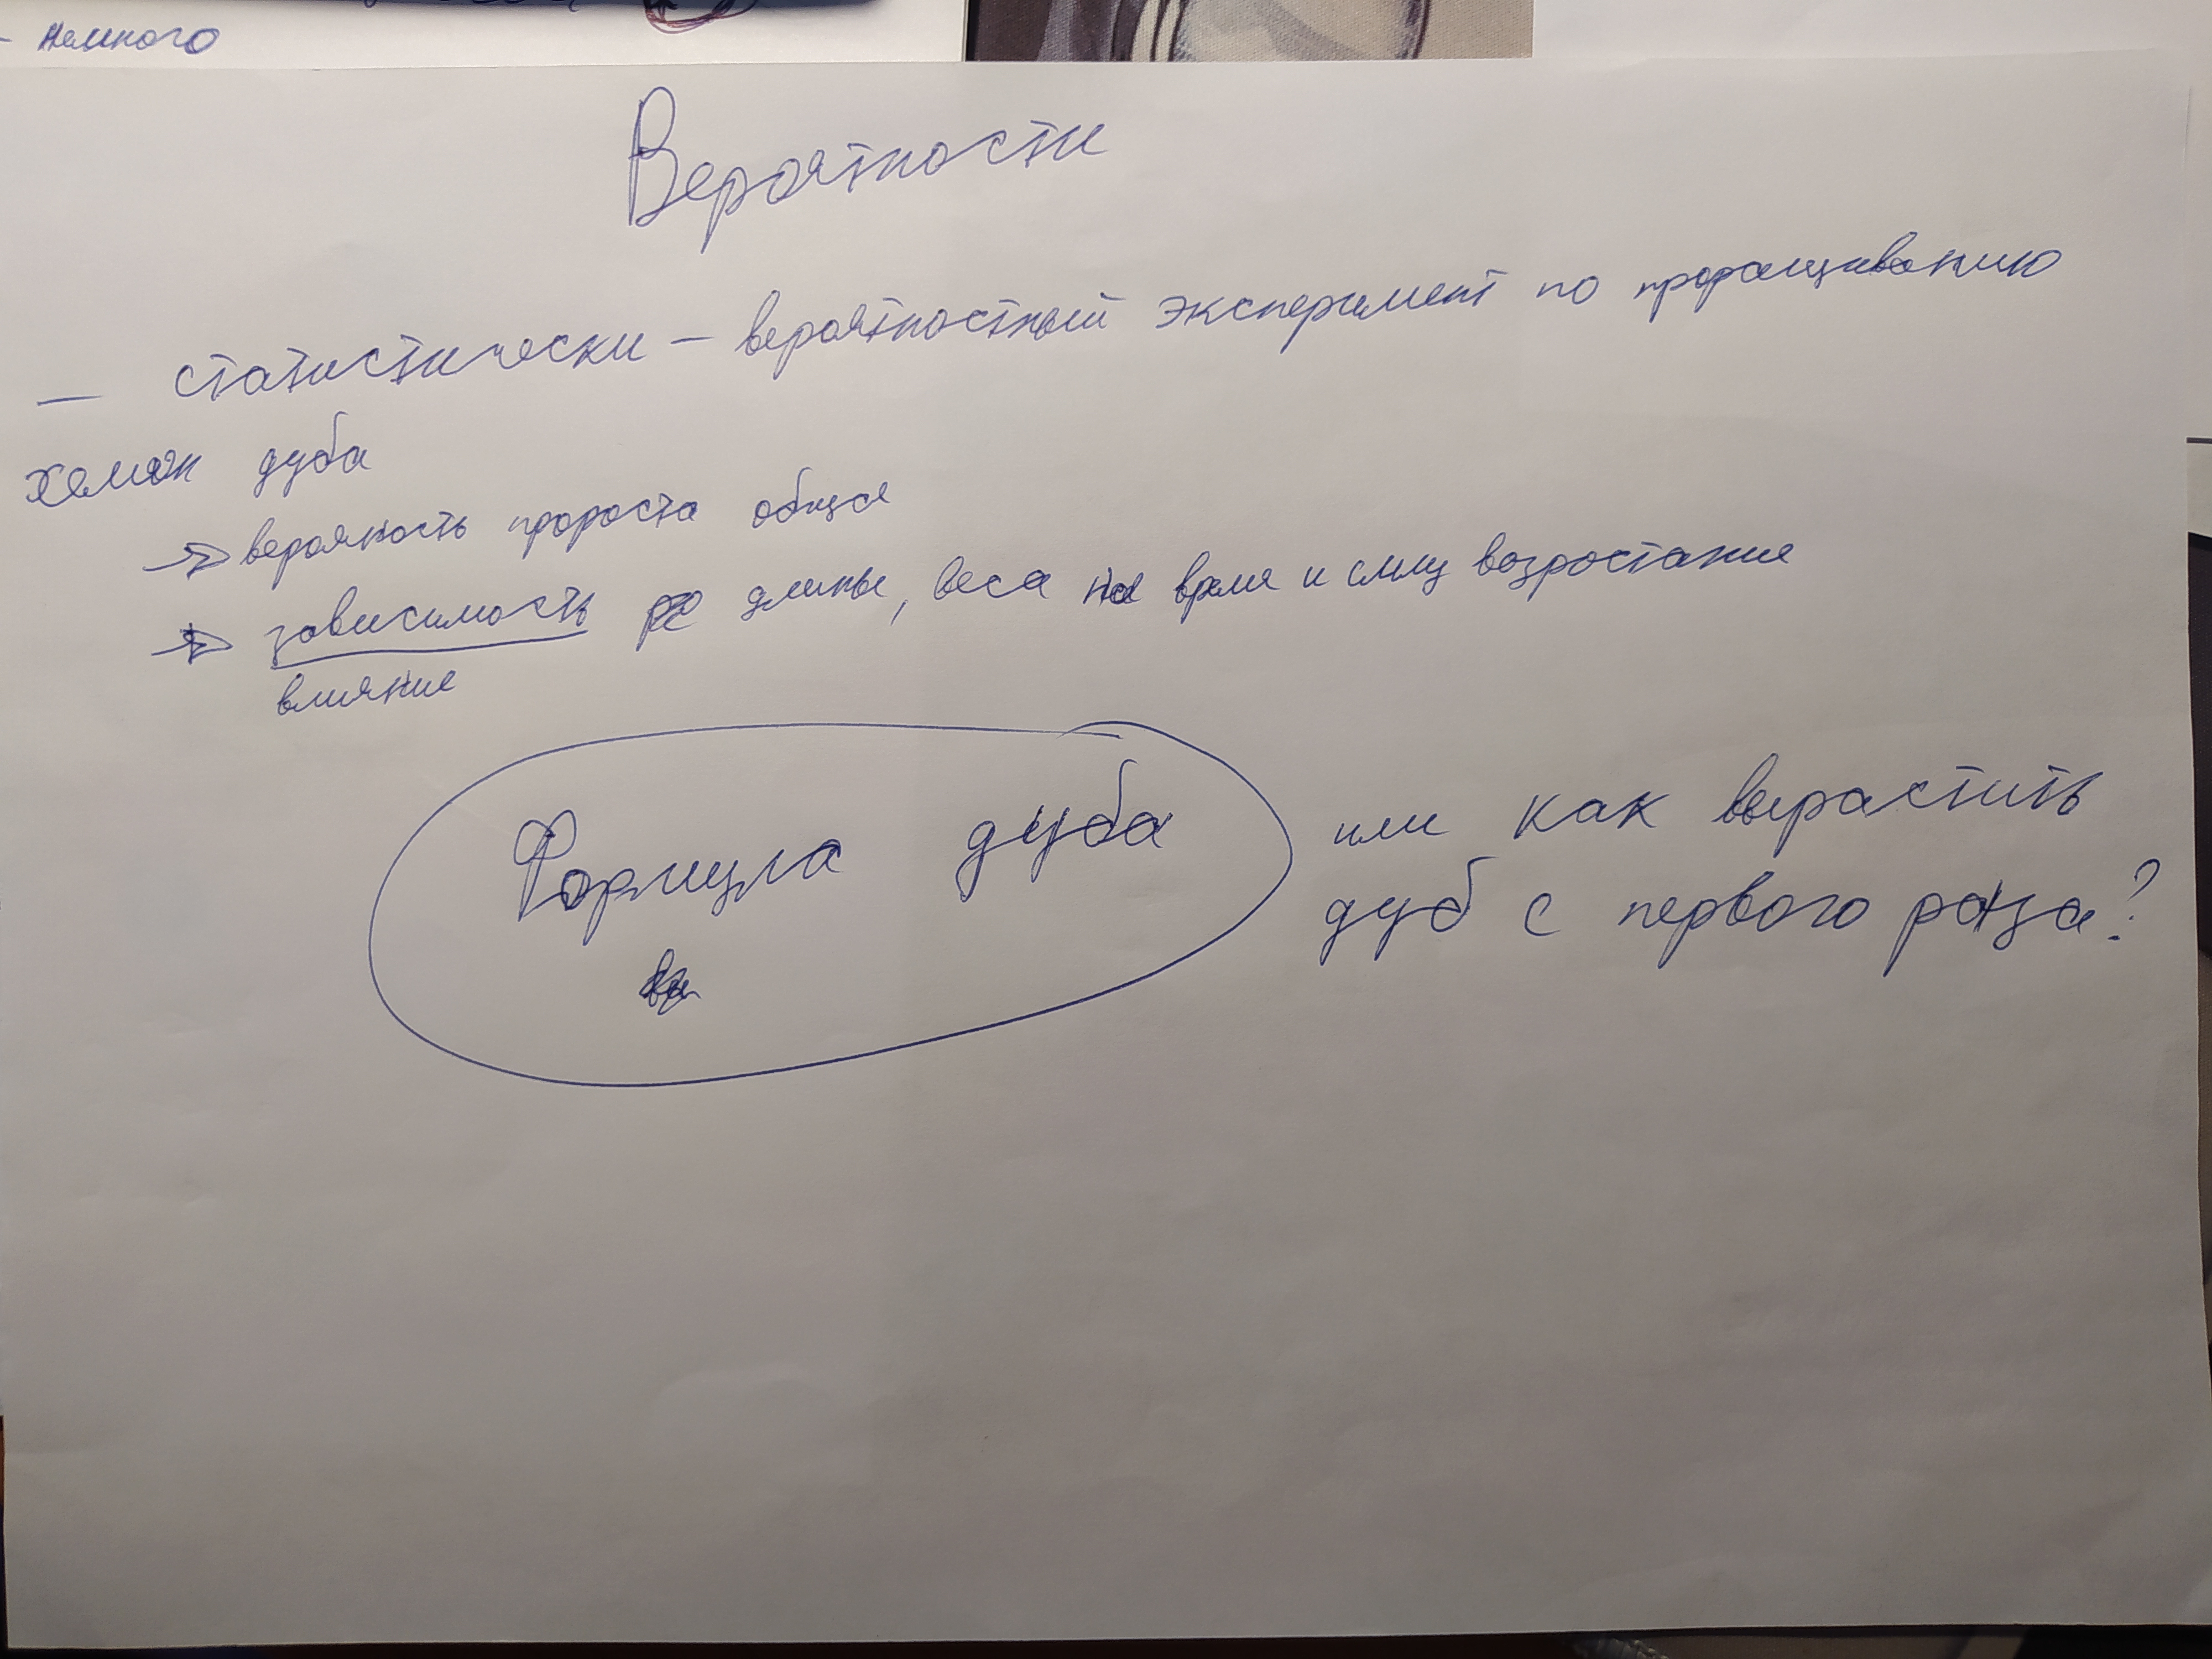 немного
Вероятности
— статистически – вероятностный эксперимент по проращиванию
дуба
→ вероятность пророста общая
→ зависимость
длины, веса на время и силу возростание
влияние
Формула дуба
или как вырастить
дуб с первого раза?